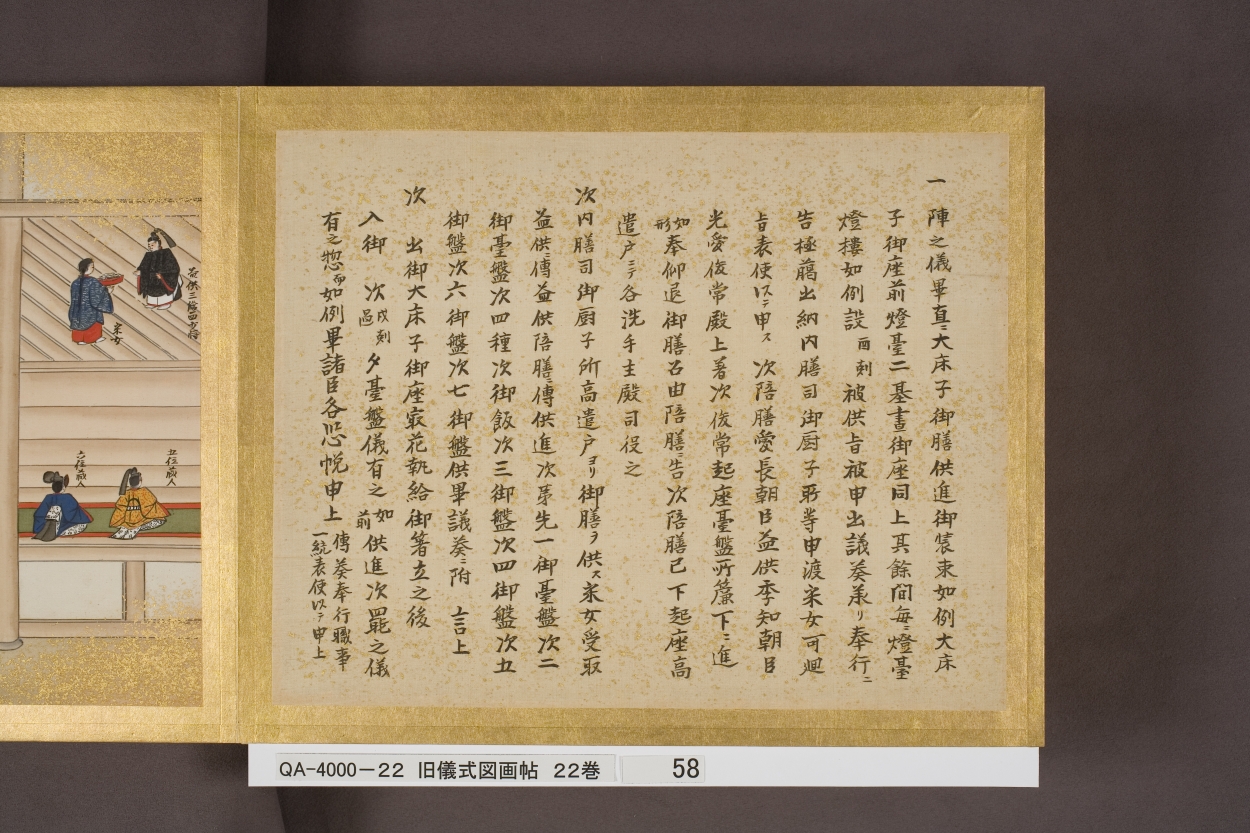 一 陣之儀畢直ニ大床子御膳供進御装束如例大床
子御座前燈臺二基晝御座同上其餘間毎ニ燈臺
燈搂如例設 酉刻 被供旨被申出議奏兼リ奉行ニ
告極﨟出納内膳司御厨子所等申渡采女可廻
旨表使以テ申ス 次陪膳愛長朝臣益供季知朝臣
光愛俊常殿上著次俊常起座臺盤所簾下ニ進
如形奉仰退御膳召由陪膳ニ告次陪膳已下起座高
遣戸ニテ各洗手主殿司役之
次内膳司御厨子所高遣戸ヨリ御膳ヲ供ス采女受取
益供ニ傳益供陪膳ニ傳供進次第先一御臺盤次二
御臺盤次四種次御飯次三御盤次四御盤次五
御盤次六御盤次七御盤供畢議奏ニ附 言上
次 出御大床子御座寂花執給御箸立之後
入御 次 戌刻過 夕臺盤儀有之如前供進次罷之儀
有之惣而如例畢諸臣各恐悦申上 傳奏奉行職事
一統表使以テ申上
益供三位四五位
采女
五位蔵人
六位蔵人
QA-4000-22 旧儀式図画帖 22巻 58